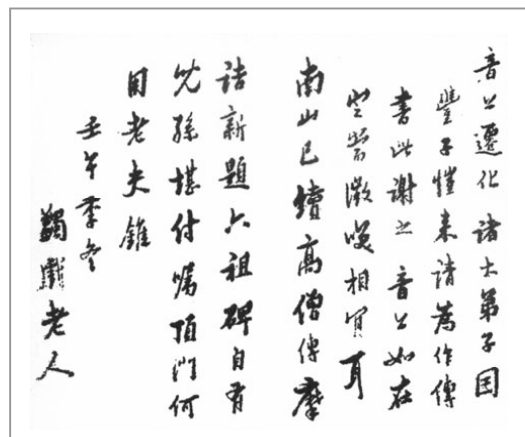 音公遷化諸大弟子因
豐子愷來請為作傳
書此謝之 音公如在
當微咲相耳
南山已續高僧傳摩
詰新題六祖碑自有
兒孫堪付嘱頂門何
用老夫錐
壬午季冬
蠲戲老人